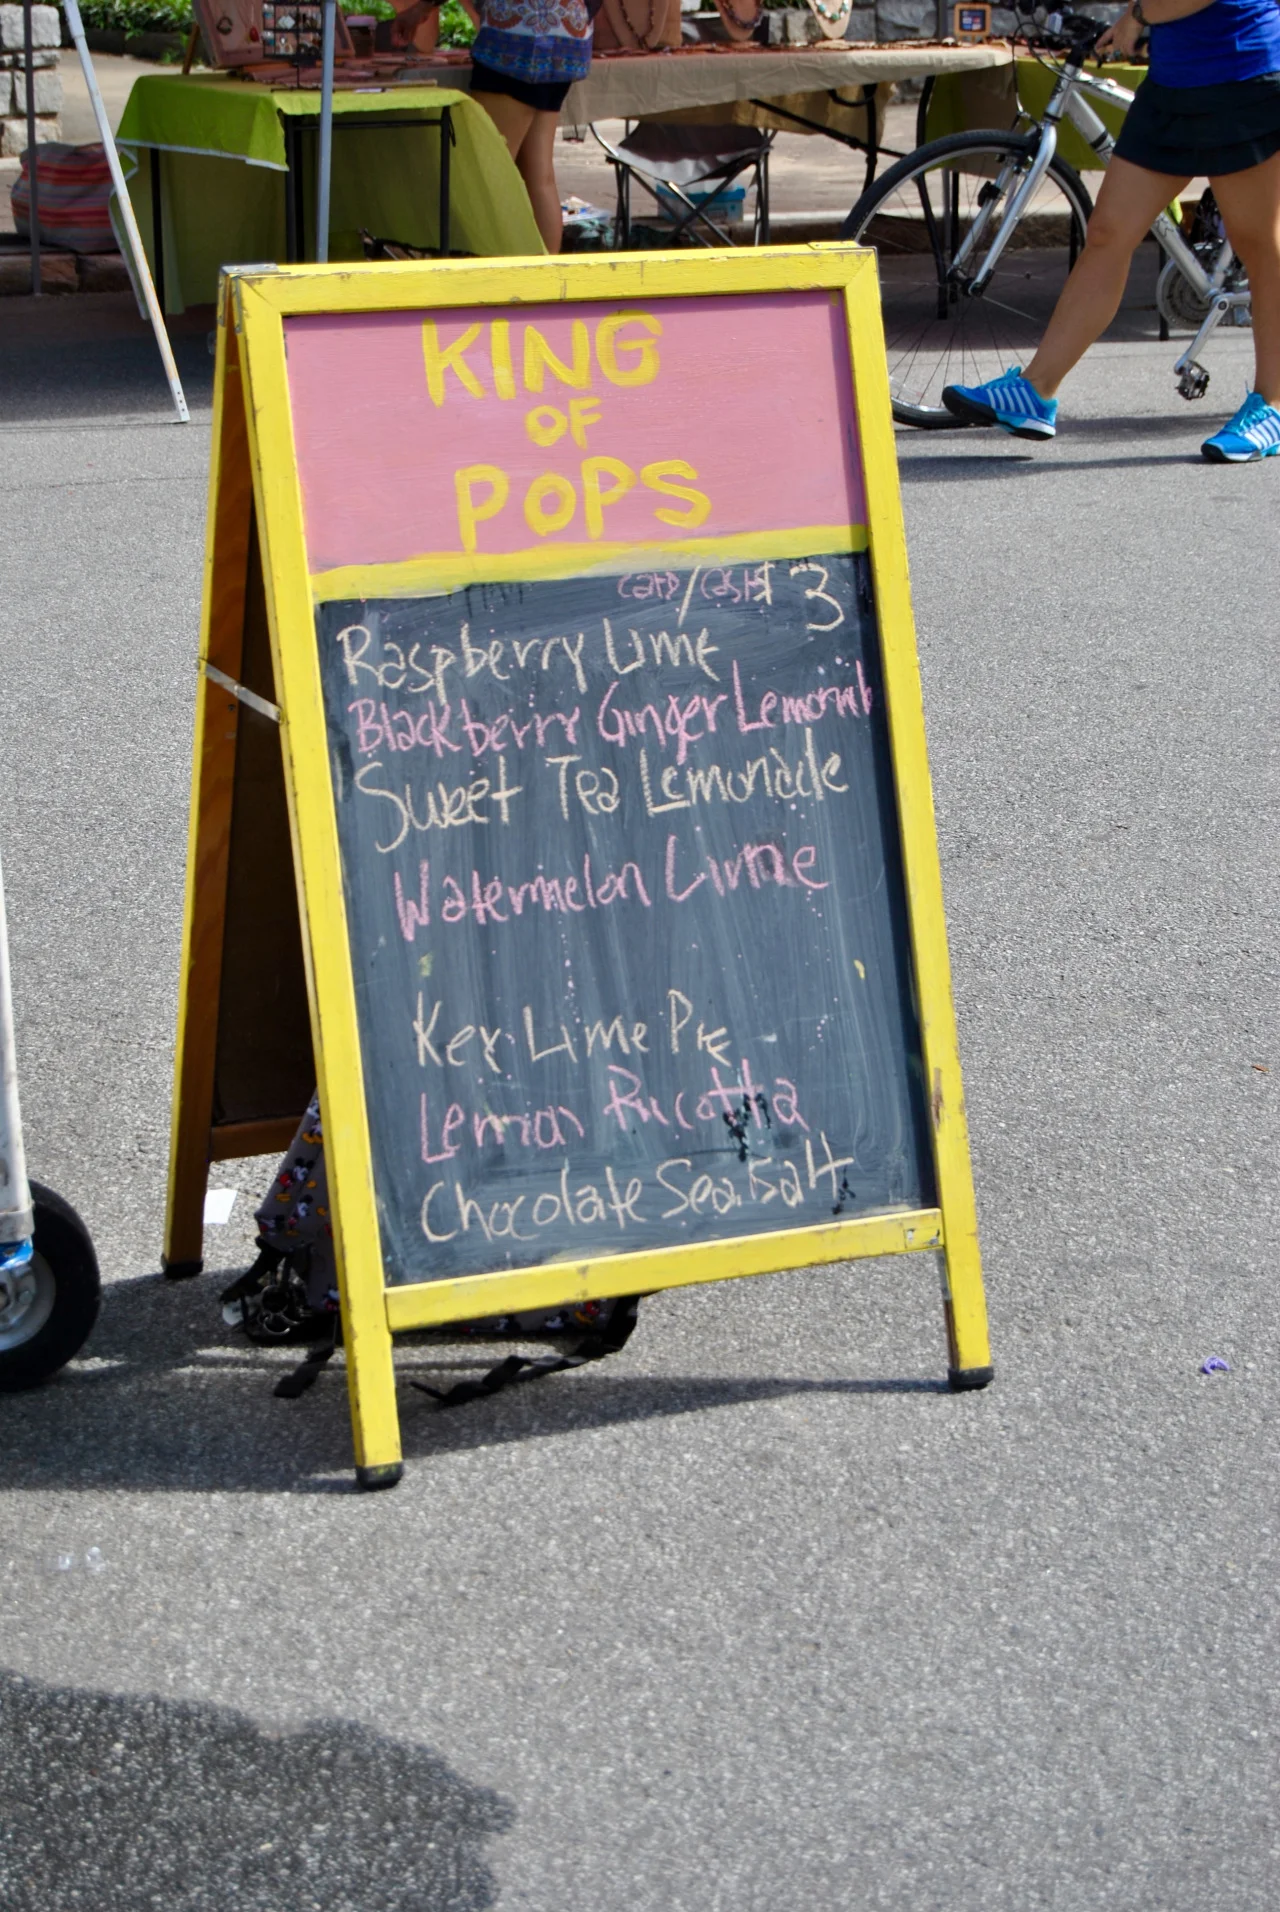 KING
OF
POPS
card/cash $3
Raspberry Lime
Blackberry Ginger Lemonade
Sweet Tea Lemonade
Watermelon Lime
Key Lime Pie
Lemon Ricotta
Chocolate Sea Salt